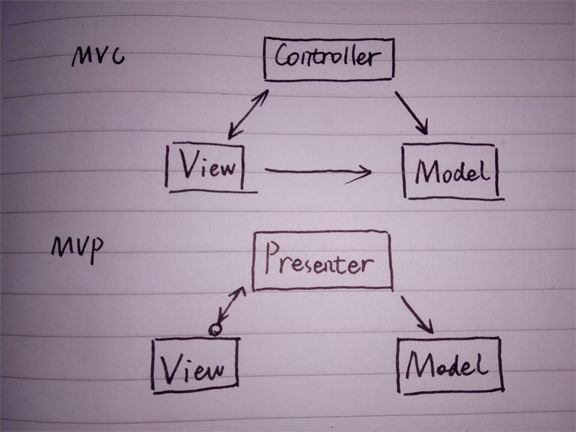 MVC
Controller
View
Model
MVP
Presenter
View
Model